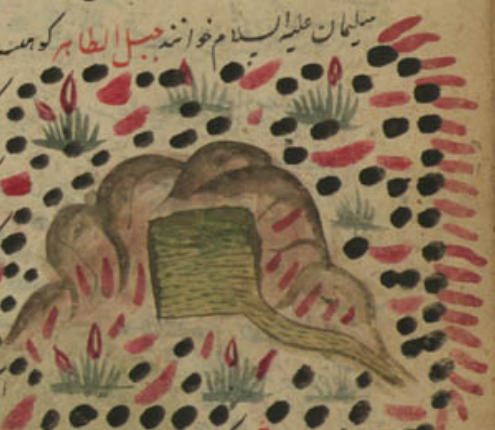 سلیمان علیه السلام خوانند جبل الطاهر کوهیست